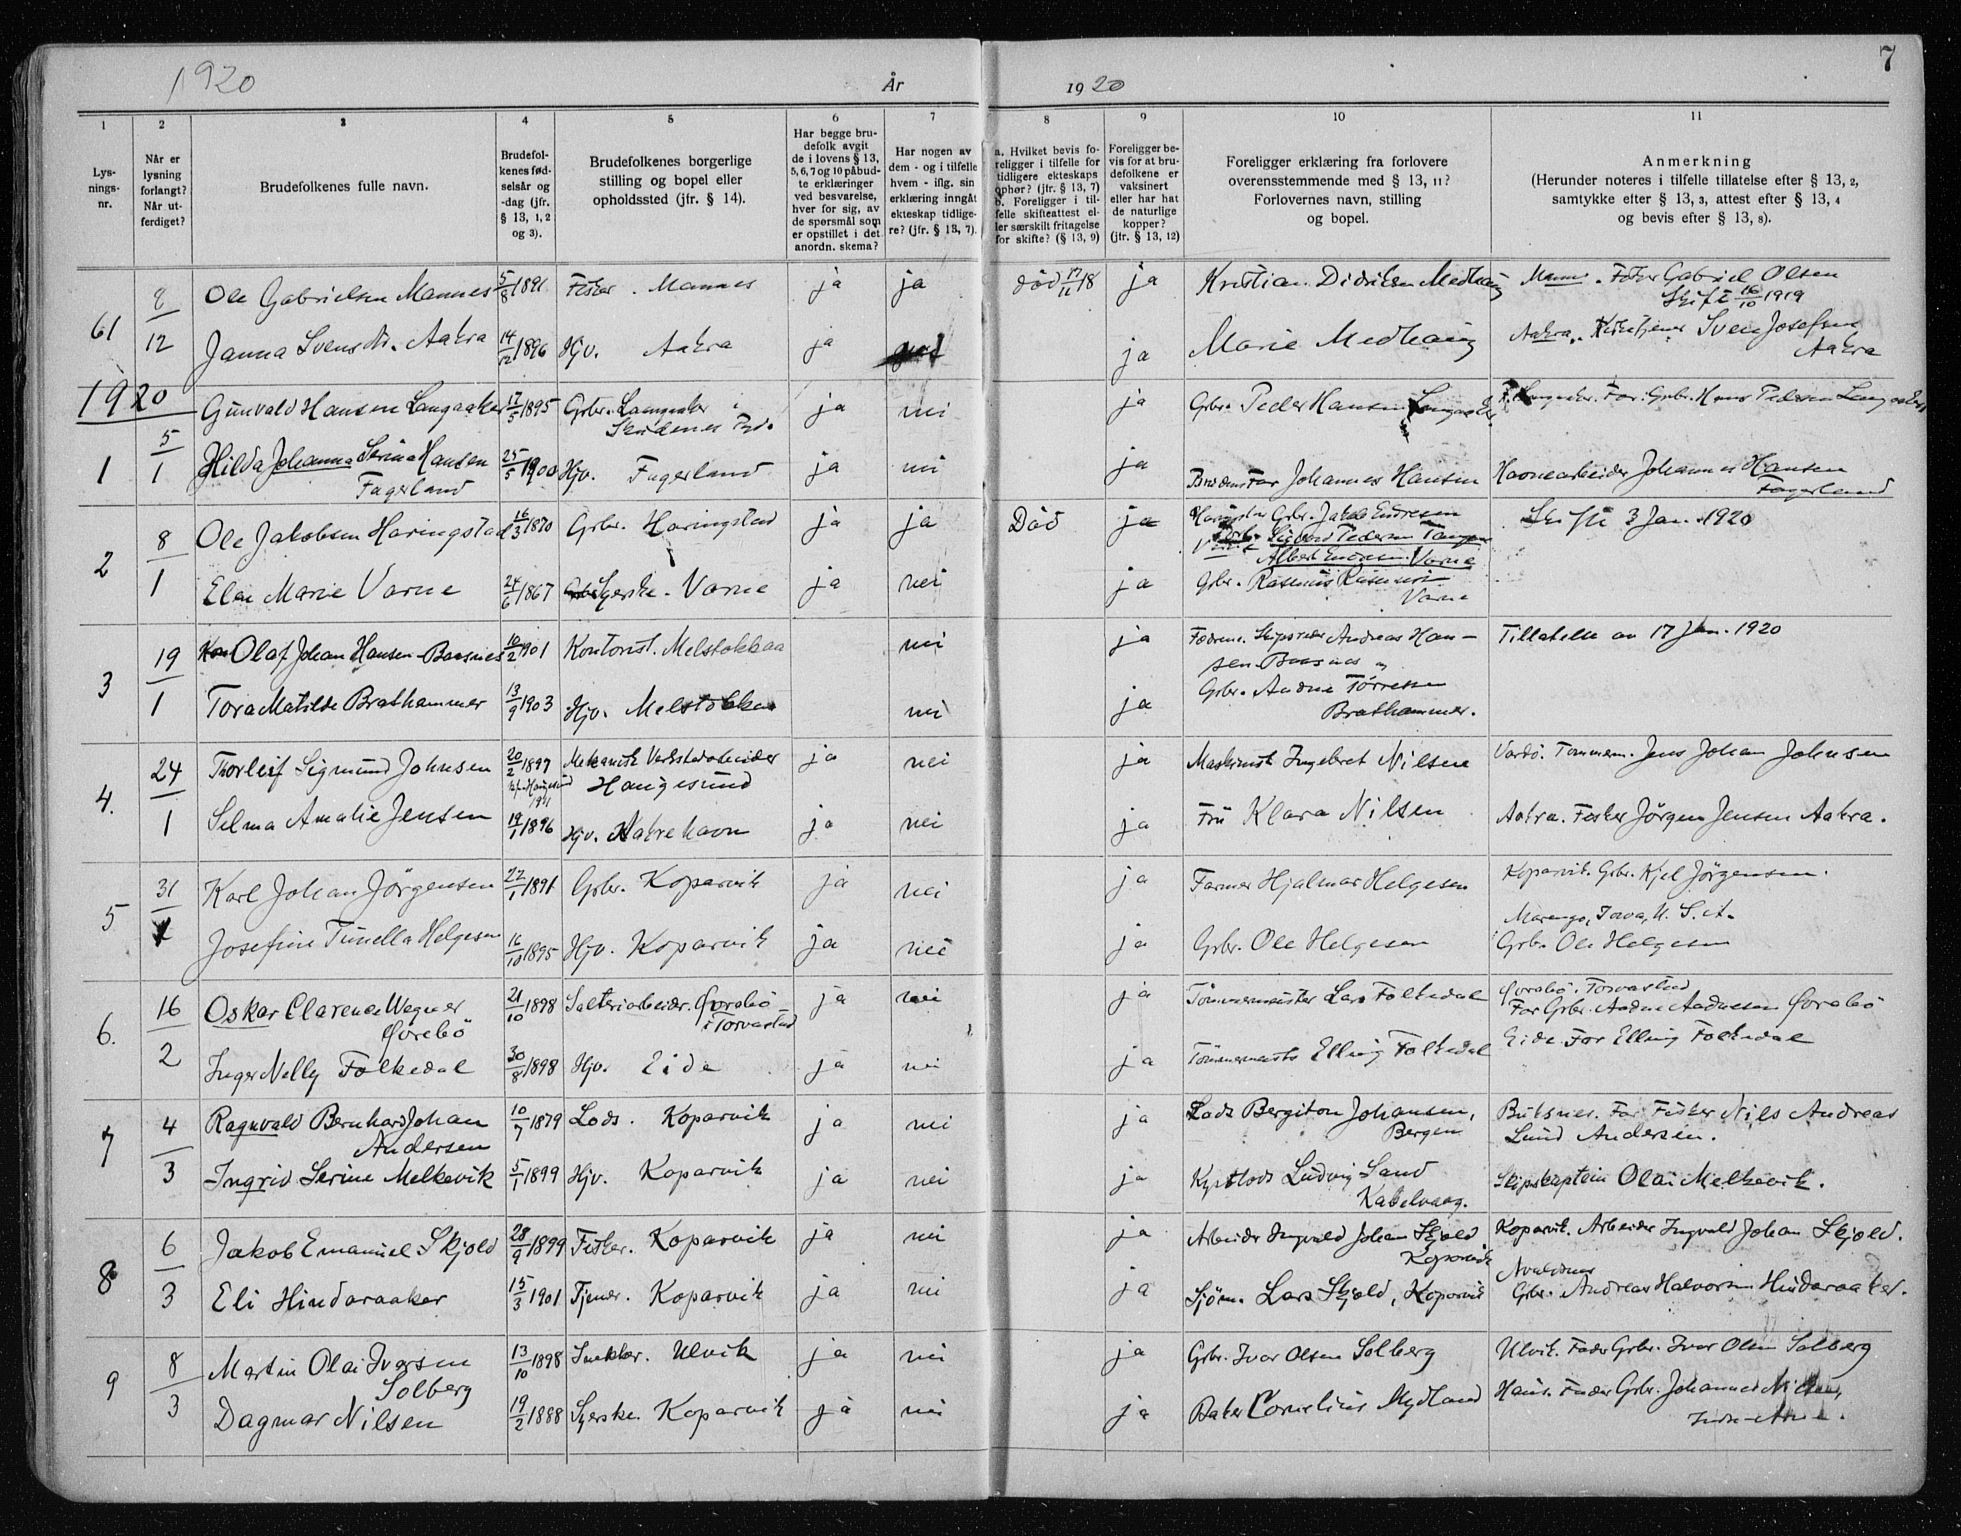 1920
År
1920
7
1
2
3
4
5
6
7
8
9
10
11
Lys-
nings-
nr.
Når er
lysning
forlangt?
Når ut-
ferdiget?
Brudefolkenes fulle navn.
Brudefol-
kenes fød-
selsår og
-dag (jfr.
§ 13, 1, 2
og 3).
Brudefolkenes borgerlige
stilling og bopel eller
opholdssted (jfr. § 14).
Har begge bru-
defolk avgit
de i lovens § 13,
5, 6, 7 og 10 påbud-
te erklæringer
ved besvarelse,
hver for sig, av
de spørsmål som
er opstillet i det
anordn. skema?
Har nogen av
dem - og i tilfelle
hvem - iflg. sin
erklæring inngåt
ekteskap tidlige-
re? (jfr. § 13, 7).
a. Hvilket bevis fo-
religger i tilfelle for
tidligere ekteskaps
ophør? (jfr. § 13, 7)
b. Foreligger i til-
felle skifteattest el-
ler særskilt fritagelse
for skifte? (§ 13, 9)
Foreligger be-
vis for at bru-
defolkene er
vaksinert
eller har hat
de naturlige
kopper?
(jfr. § 13, 12)
Foreligger erklæring fra forlovere
overensstemmende med § 13, 11?
Forlovernes navn, stilling
og bopel.
Anmerkning
(Herunder noteres i tilfelle tillatelse efter § 13, 2,
samtykke efter § 13, 3, attest efter § 13, 4
og bevis efter § 13, 8).
61 9/12 Ole Gabrielsen Mannes 5/8 1891 Fisker. Mannes ja ja død 17/11 18 ja Kristian Didriksen Medhaug Mannes. Fisker Gabriel Olsen
Skifte 16/10 1919
Janna Svensdtr. Aakra 14/12 1896 Hjv. Aakra ja ja Marie Medhaug Aakra. Kirketjener Sven Josefsen
Aakra
1920
1 5/1 Gunvald Hansen Langaaker 17/5 1895 Grbr. Langaaker i ja nei ja Grbr. Peder Hansen Langaaker Langaaker. Far. Grbr. Hans Pedersen Langaaker
Skudenes
Hilda Johanna Serina Hansen 25/5 1900 Hjv. Fagerland ja nei ja Brudens Far Johannes Hansen Havnearbeider Johannes Hansen
Fagerland
Fagerland
2 8/1 Ole Jakobsen Haringstad 16/3 1870 Grbr. Haringstad ja ja Død ja Grbr. Jakob Endresen Skifte 3 Jan. 1920
Sigurd Pedersen Tangen
Albert Endresen Varne
Elen Marie Varne 24/6 1867 Syerske. Varne ja nei ja Grbr. Rasmus Rasmussen
Varne
3 19/1 Olaf Johan Hansen-Baasnes 10/2 1901 Kontorist. Melstokkaa nei ja Fædrene. Skipsreder Andreas Han- Tillatelse av 17 Jan. 1920
sen-Baasnes og
Tora Matilde Brathammer 13/9 1903 Hjv. Melstokkaa nei ja Grbr. Andne Tørresen
Brathammer.
4. 24/1 Thorleif Sigmund Johnsen 20/2 1897 Mekanisk Verkstedarbeider ja nei ja Maskinist Ingebret Nilsen Vardö. Tømmerm. Jens Johan Johnsen
Haugesund
Selma Amalie Jensen 19/1 1896 Hjv. Aakrehavn ja nei ja Fru Klara Nilsen Aakra. Fisker Jörgen Jensen Aakra.
5 31/1 Karl Johan Jörgensen 22/1 1891 Grbr. Koparvik ja nei ja Farmer Hjalmar Helgesen Koparvik. Grbr. Kjel Jörgensen.
Marengo, Iowa, U. S. A.
Josefine Tunella Helgesen 16/10 1895 Hjv. Koparvik ja nei ja Grbr. Ole Helgesen Grbr. Ole Helgesen
6. 16/2 Oskar Clarence Wagner 21/10 1898 Salteriarbeider. Gjørebö ja nei ja Tømmermester Lars Folkedal Gjørebö. Torvastad
Gjørebö i Torvastad Far Grbr. Andne Andnesen Gjørebö
Inger Nelly Folkedal 30/8 1898 Hjv. Eide ja nei ja Tömmermester Elling Folkedal Eide. Far Elling Folkedal
7 4/3 Ragnvald Bernhard Johan 10/7 1879 Lods. Koparvik ja nei ja Lods Bergiton Johansen, Buksnes. Far Fisker Nils Andreas
Andersen Bergen Lund Andersen.
Ingrid Serine Melkevik 5/1 1899 Hjv. Koparvik ja nei ja Kystlods Ludvig Sand Skipskaptein Olai Melkevik.
Kabelvaag.
8 6/3 Jakob Emanuel Skjold 28/9 1899 Fisker. Koparvik ja nei ja Arbeider Ingvald Johan Skjold Koparvik. Arbeider Ingvald Johan Skjold.
Koparvik
Avaldsnes
Eli Hindaraaker 15/3 1901 Tjener. Koparvik ja nei ja Sjöm. Lars Skjold, Koparvik Grbr. Andreas Halvorsen Hindaraaker.
9 8/3 Martin Olai Iversen 13/10 1898 Snekker. Ulvik ja nei ja Grbr. Ivar Olsen Solberg Ulvik. Fader Grbr. Ivar Olsen Solberg
Solberg
Dagmar Nilsen 19/2 1888 Syerske. Koparvik ja nei ja Baker Cornelius Mydland Haus. Fader Grbr. Johannes Nilsen